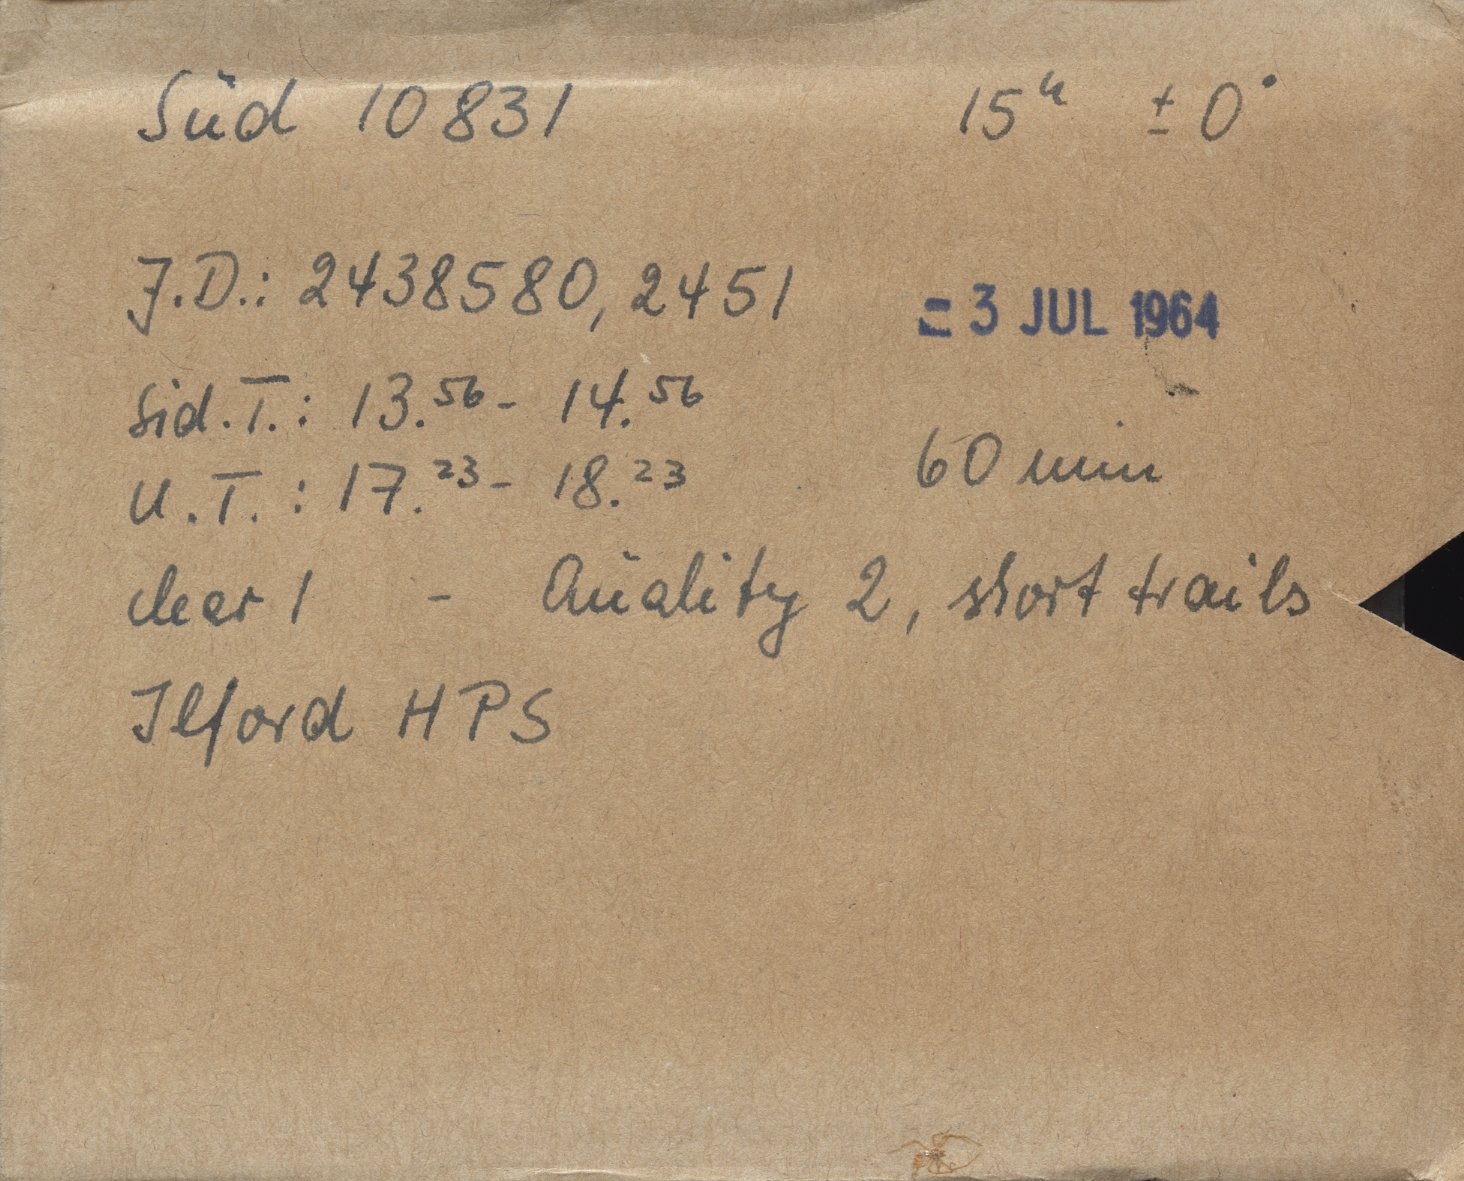 Süd 10831 15ʰ ± 0°
J.D.: 2438580,2451 = 3 JUL 1964
Sid.T.: 13.⁵⁶ - 14.⁵⁶
60 min
U.T.: 17.²³ - 18.²³
clear 1 - Quality 2, short trails
Ilford HPS